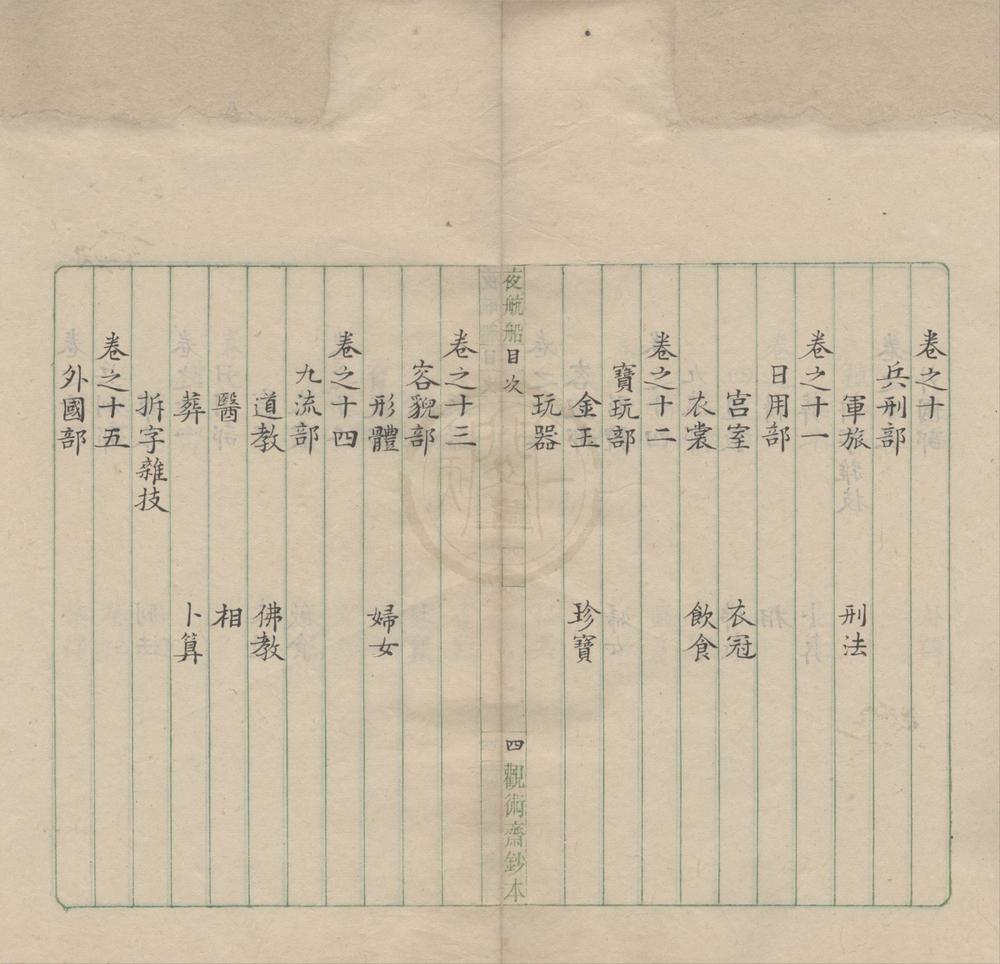 卷之十
兵刑部
軍旅 刑法
卷之十一
日用部
宮室 衣冠
衣裳 飲食
卷之十二
寶玩部
金玉 珍寶
玩器
夜航船 目次 四 觀術齋鈔本
卷之十三
容貌部
形體 婦女
卷之十四
九流部
道教 佛教
醫 相
葬 卜算
拆字雜技
卷之十五
外國部